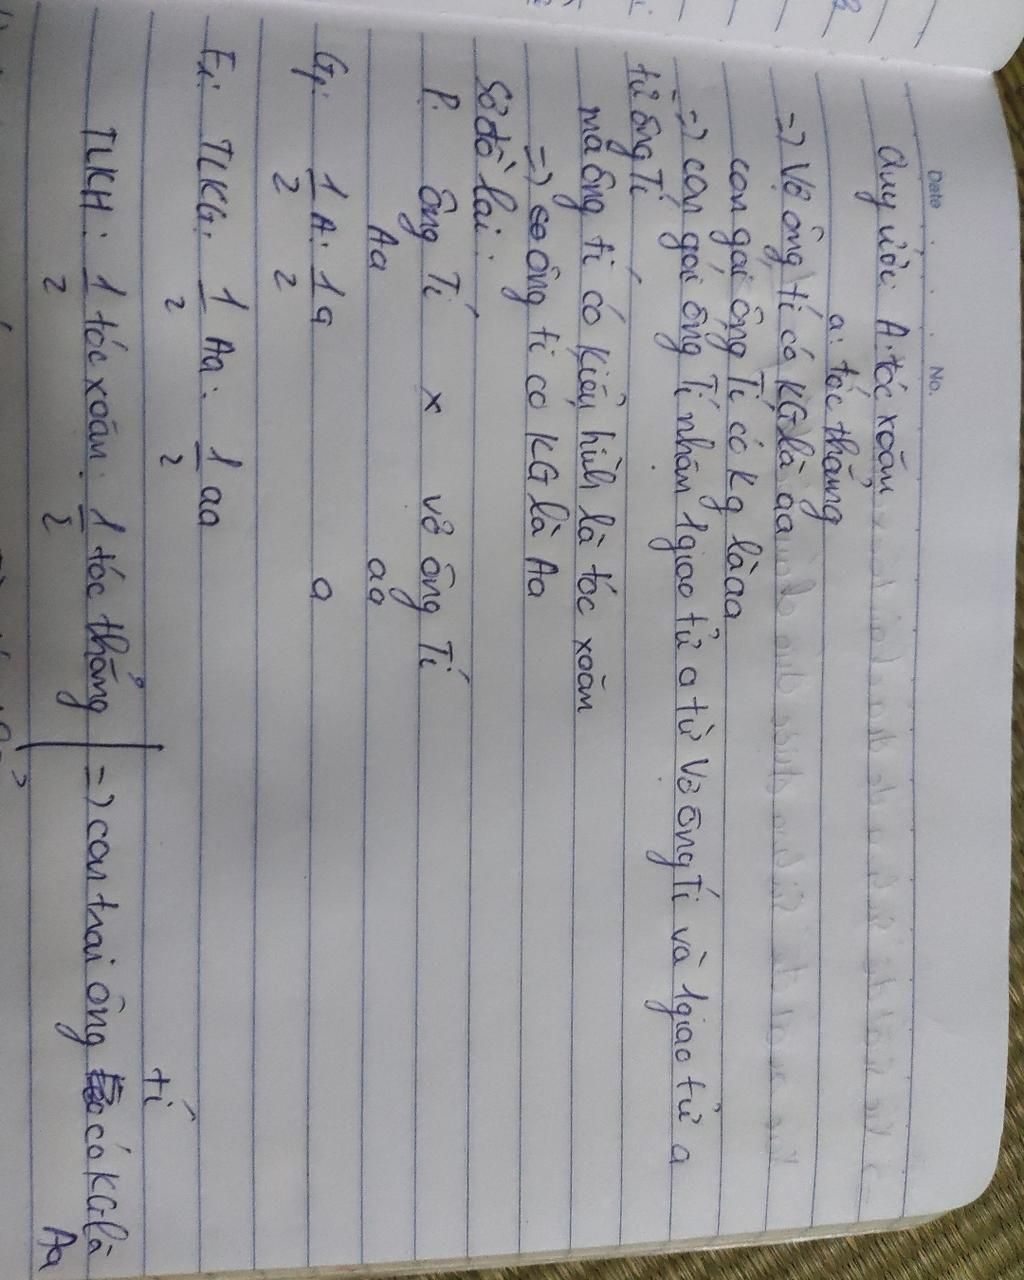 Date
No.
Quy ước: A: tóc xoăn
a: tóc thẳng
=> Vợ ông tí có KG là aa
con gái ông Tí có kg là aa
=> con gái ông Tí nhận 1 giao tử a từ Vợ ông Tí và 1 giao tử a
từ ông Tí
mà ông tí có kiểu hình là tóc xoăn
=> ông tí có KG là Aa
Sơ đồ lai:
P: ông Tí x vợ ông Tí
Aa aa
Gp: 1/2 A: 1/2 a a
F1: TLKG: 1/2 Aa: 1/2 aa
tí
TLKH: 1/2 tóc xoăn: 1/2 tóc thẳng => con trai ông có KG là
Aa